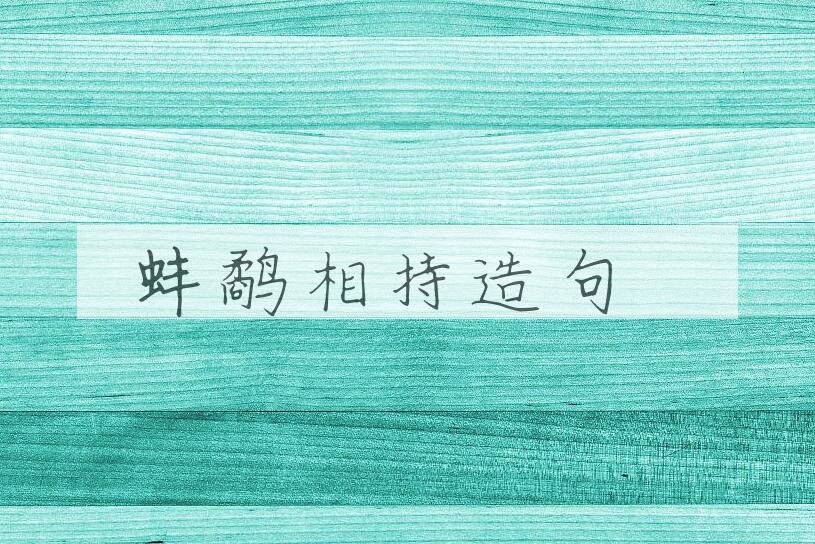 蚌鹬相持造句